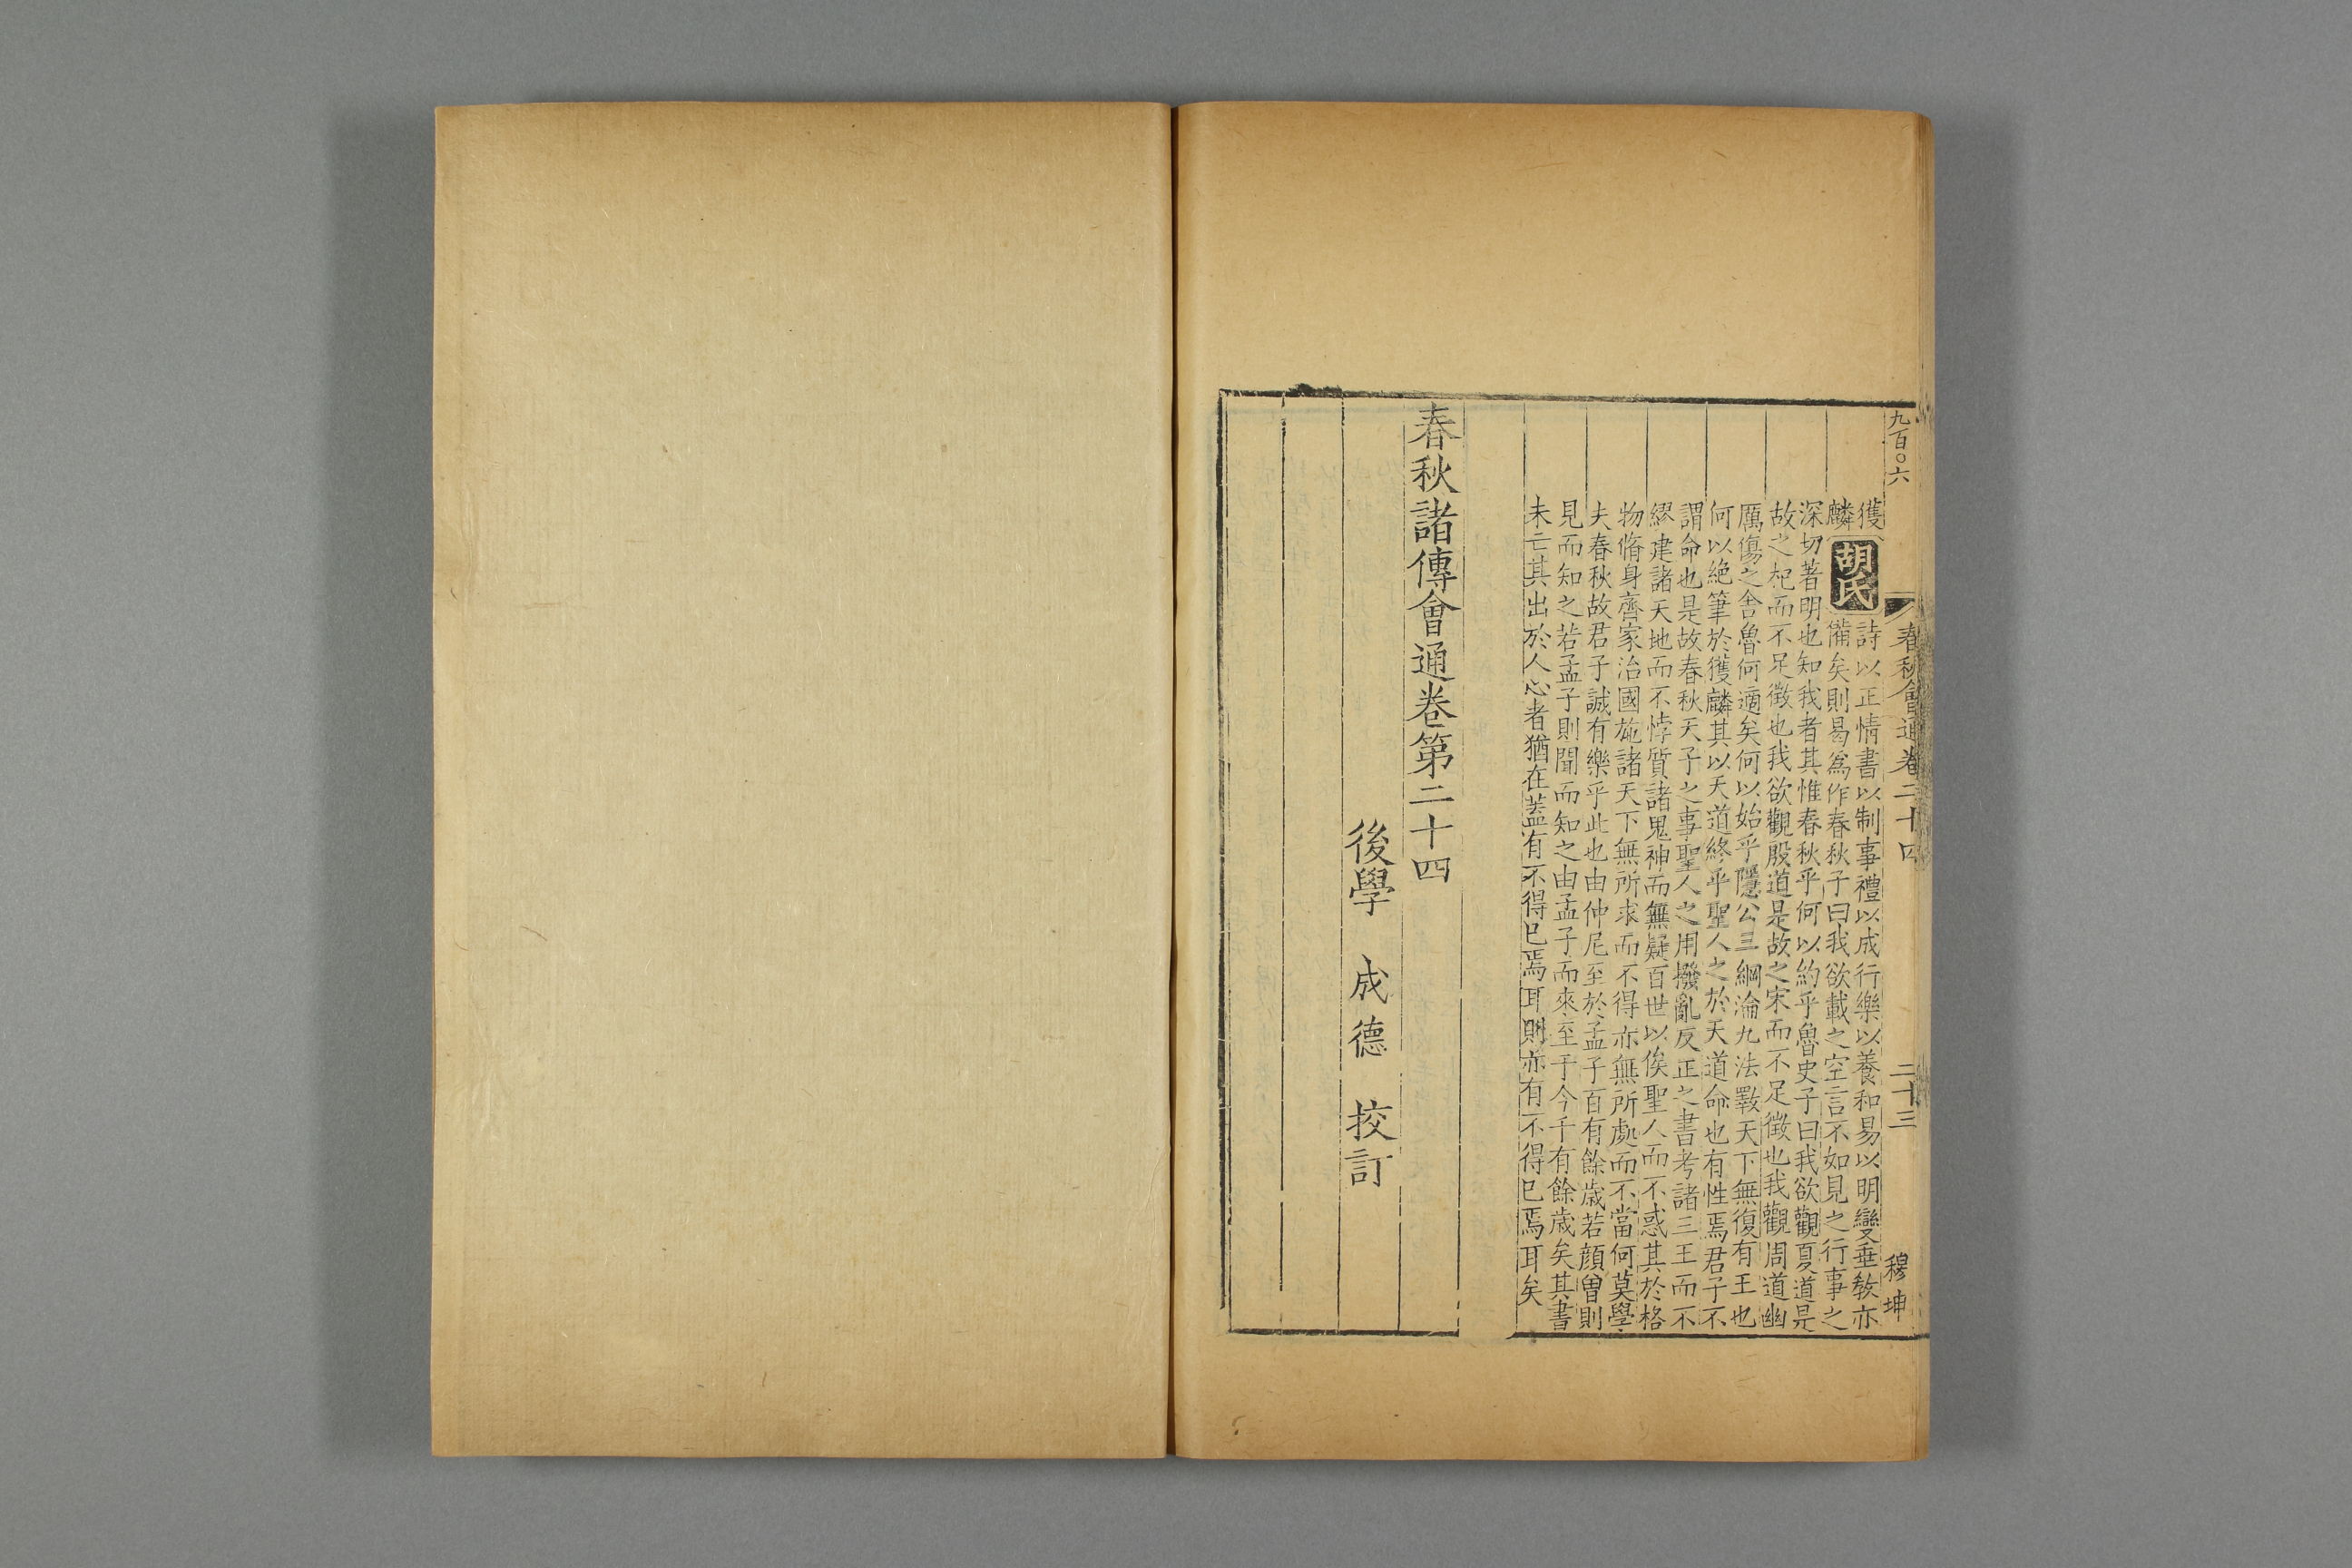 九百〇六
春秋會通卷二十四
二十三
穆坤
獲
麟
胡氏
詩以正情書以制事禮以成行樂以養和易以明變垂教亦
備矣則曷爲作春秋子曰我欲載之空言不如見之行事之
深切著明也知我者其惟春秋乎何以約乎魯史子曰我欲觀夏道是
故之杞而不足徵也我欲觀殷道是故之宋而不足徵也我觀周道幽
厲傷之舍魯何適矣何以始乎隱公三綱淪九法斁天下無復有王也
何以絕筆於獲麟其以天道終乎聖人之於天道命也有性焉君子不
謂命也是故春秋天子之事聖人之用撥亂反正之書考諸三王而不
繆建諸天地而不悖質諸鬼神而無疑百世以俟聖人而不惑其於格
物脩身齊家治國施諸天下無所求而不得亦無所處而不當何莫學
夫春秋故君子誠有樂乎此也由仲尼至於孟子百有餘歲若顔曾則
見而知之若孟子則聞而知之由孟子而來至于今千有餘歲矣其書
未亡其出於人心者猶在蓋有不得已焉耳則亦有不得已焉耳矣
春秋諸傳會通卷第二十四
後學 成德 挍訂